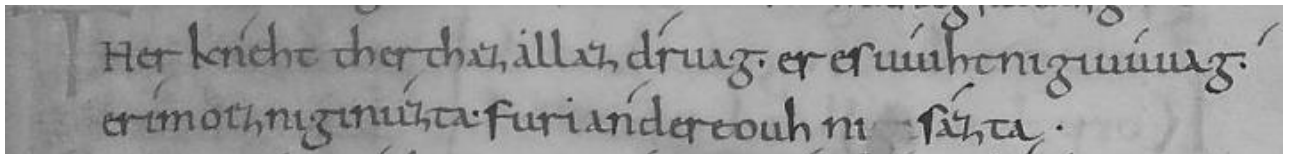 Her kneht ther thaz, allaz, druag· er es uuiht ni giuuuag·
er imo iz, ni ginuzta· furi andere ouh ni sazta·